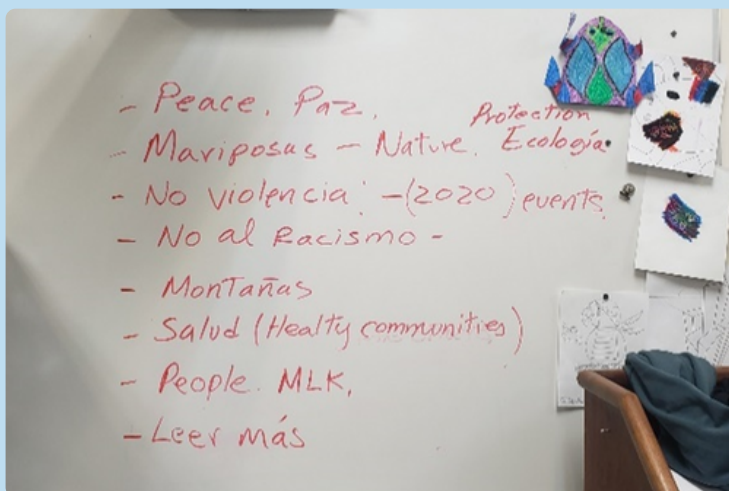 - Peace. Paz.
Protection
- Mariposas - Nature. Ecología.
- No violencia: -(2020) events.
- No al Racismo -
- Montañas
- Salud (Healty communities)
- People. MLK,
- Leer más